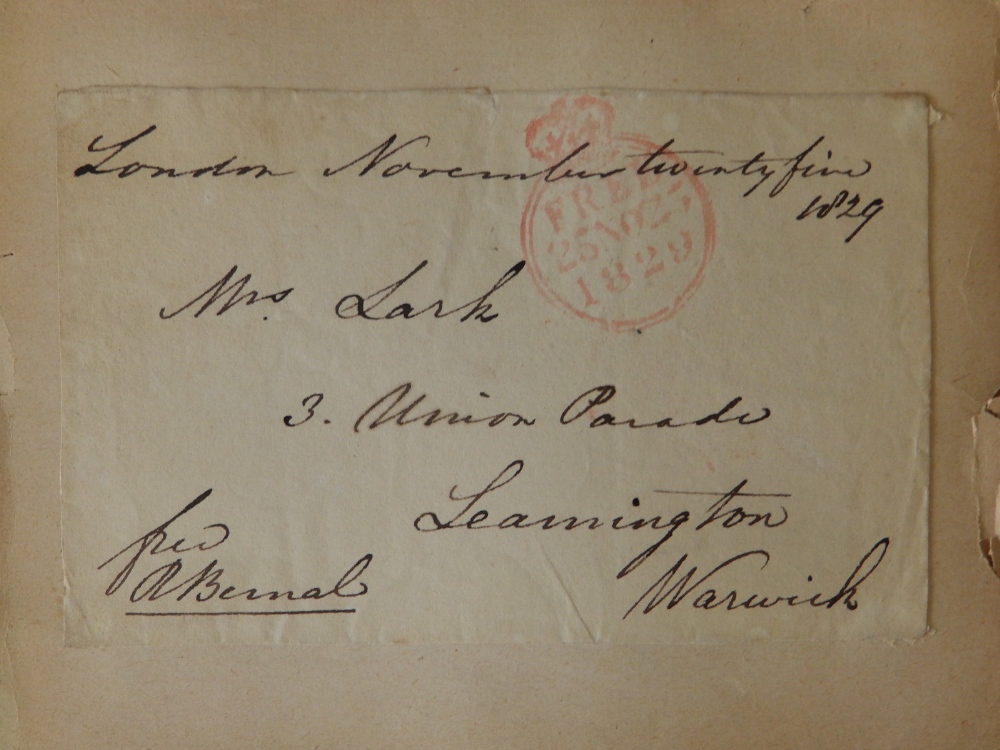 London November twenty five
1829
FREE
25 NO 25
1829
Mrs. Lark
3. Union Parade
Leamington
free
R Bernal
Warwick